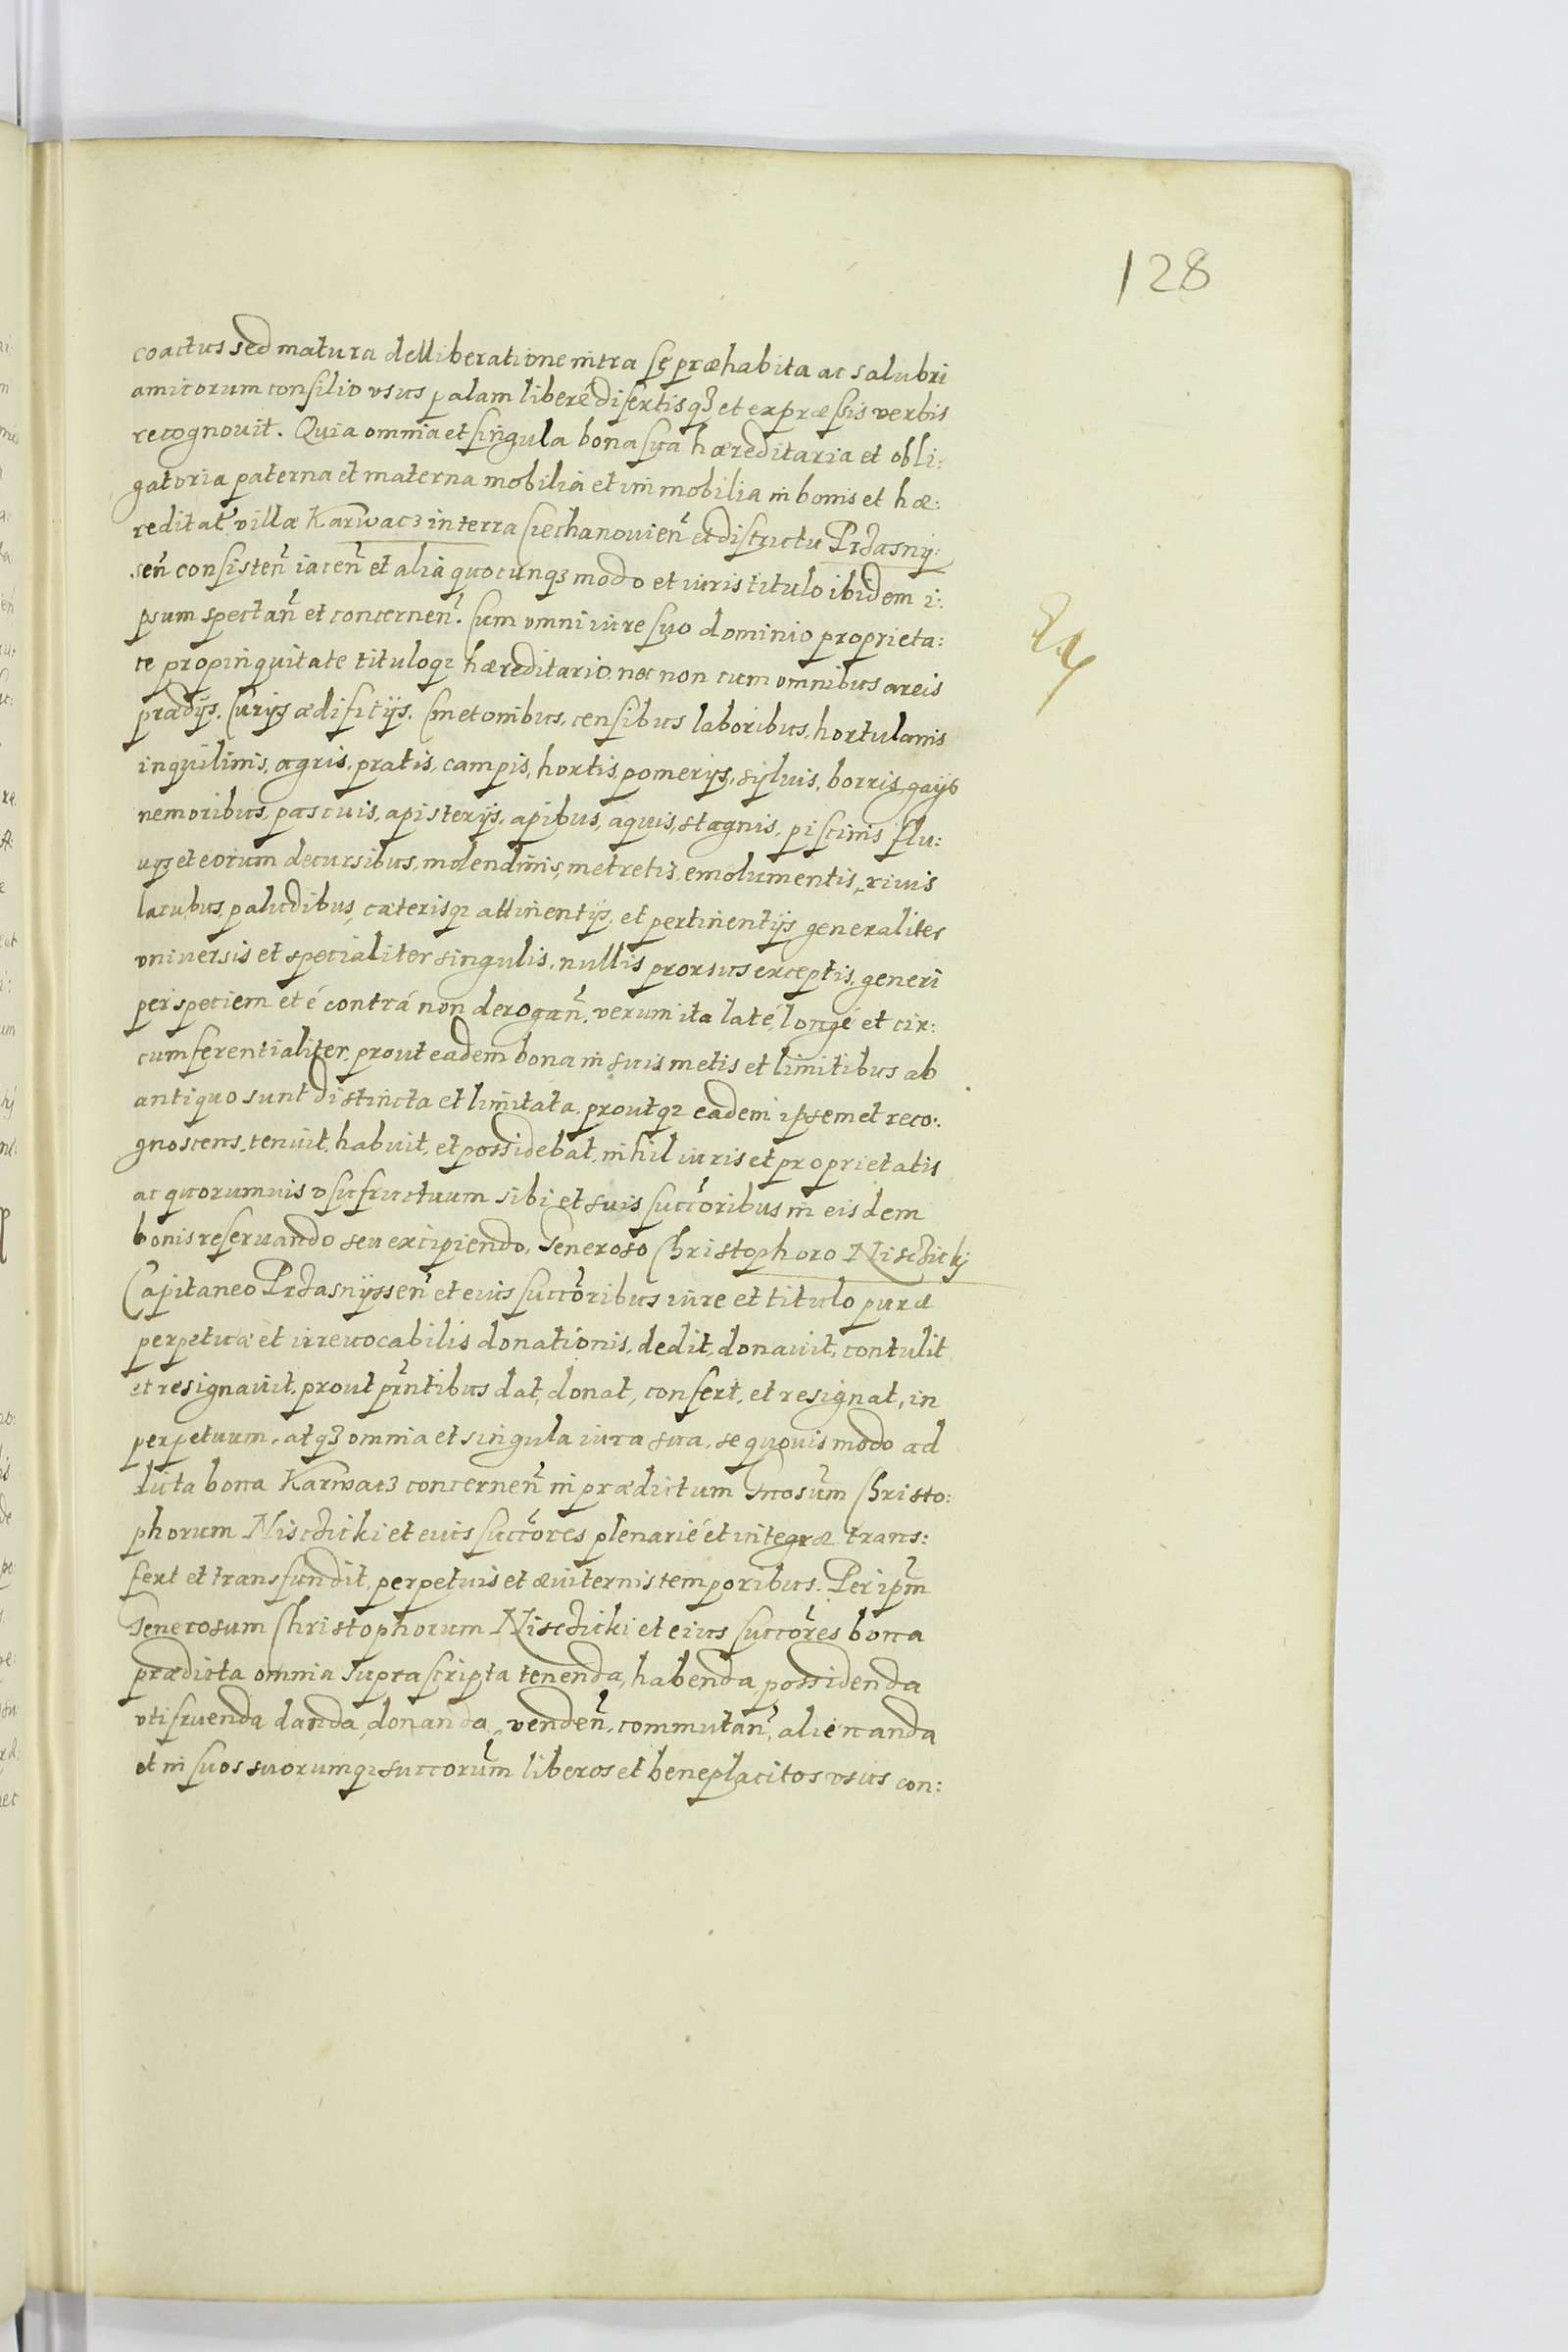 128
coactus sed matura delliberatione intra se præhabita ac salubri
amicorum consilio vsus palam liberé disertisqꝫ et expræssis verbis
recognouit. Quia omnia et singula bona sua hæreditaria et obli:
gatoria paterna et materna mobilia et immobilia in bonis et hæ:
reditat villæ Karwacz in terra Ciechanouien̄ et districtu Przasnÿ:
sen̄ consisten̄ iacen̄ et alia quocunqꝫ modo et iuris titulo ibidem i:
psum spectan̄ et concernen̄. Cum omni iure suo dominio proprieta:
te propinquitate tituloqꝫ hæreditario. nec non cum omnibus areis
prædijs. Curijs ædificijs. Cmetonibus, censibus laboribus, hortulanis
inquilinis, agris, pratis, campis, hortis, pomerijs, syluis, borris, gays
nemoribus, pascuis, apisterijs, apibus, aquis, stagnis, piscinis flu:
uijs et eorum decursibus, molendinis, metretis, emolumentis, riuis
lacubus, paludibus, cæterisqꝫ attinentijs, et pertinentijs generaliter
vniuersis et specialiter singulis, nullis prorsus exceptis, generi
per speciem et é contrá non derogan̄, verum ita laté, longé et cir:
cumferentialiter, prout eadem bona in suis metis et limitibus ab
antiquo sunt distincta et limitata, proutqꝫ eadem ipsemet reco:
gnoscens, tenuit, habuit, et possidebat, nihil iuris et proprietatis
ac quorumuis vsufructuum sibi et suis succoribus in eisdem
bonis reseruando seu excipiendo, Generoso Christophoro Nisczicki
Capitaneo Przasnijssen̄ et eius succoribus iure et titulo puræ
perpetuæ et irreuocabilis donationis, dedit, donauit, contulit
et resignauit, prout prn̄tibus dat, donat, confert, et resignat, in
perpetuum, atqꝫ omnia et singula iura sua, se quouis modo ad
dicta bona Karwacz concernen̄ in prædictum Gnosum Christo:
phorum Nisczicki et eius succores plenarié et integræ trans:
fert et transfundit, perpetuis et æuiternis temporibus. Per ipm̄
Generosum Christophorum Nisczicki et eius succores bona
prædicta omnia suprascripta tenenda, habenda, possidenda
vtifruenda danda, donanda, venden̄, commutan̄, alienanda
et in suos suorumqꝫ succorum liberos et beneplacitos vsus con: